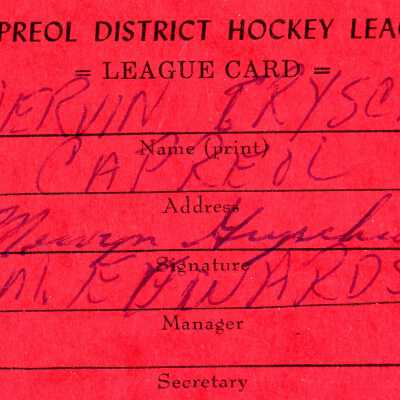 PREOL DISTRICT HOCKEY LEAG
= LEAGUE CARD =
MERVIN
Name (print)
CAPREOL
Address
Mervyn
Signature
M. EDWARDS
Manager
Secretary